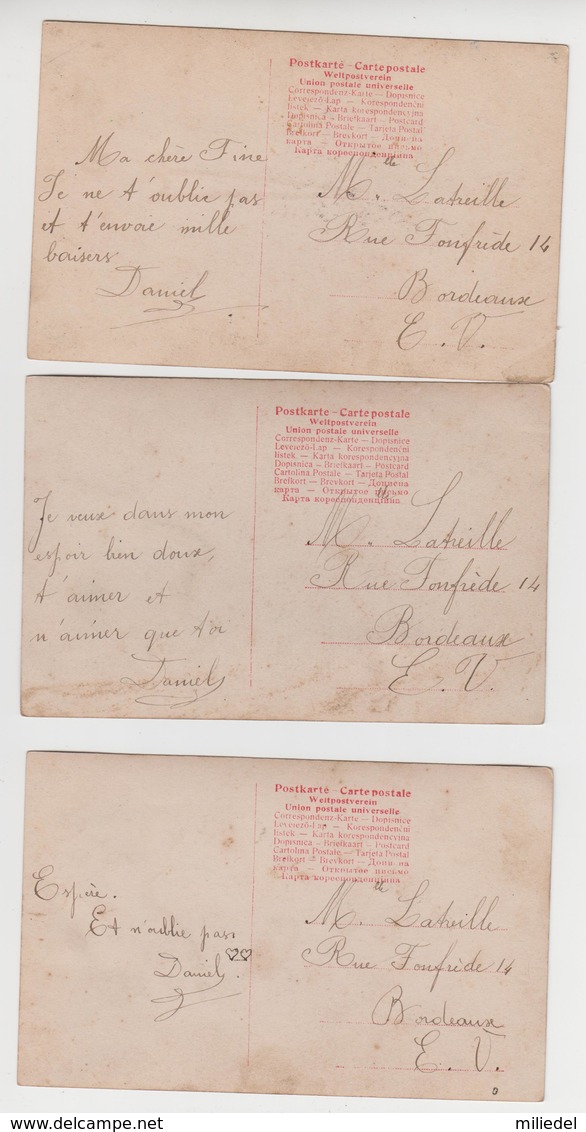 Postkarte – Carte postale
Weltpostverein
Union postale universelle
Correspondenz-Karte — Dopisnice
Levelező-Lap — Korespondenční
lístek — Karta korespondencyjna
Dopisnica — Briefkaart — Postcard
Cartolina Postale — Tarjeta Postal
Brefkort — Brevkort — Допи на
карта — Открытое письмо
Карта кореспонденціина
Ma chère Fine
Je ne t'oublie pas
et t'envoie mille
baisers
Daniel
Mlle. Latreille
Rue Fonfrède 14
Bordeaux
E. V.
Postkarte – Carte postale
Weltpostverein
Union postale universelle
Correspondenz-Karte — Dopisnice
Levelező-Lap — Korespondenční
lístek — Karta korespondencyjna
Dopisnica — Briefkaart — Postcard
Cartolina Postale — Tarjeta Postal
Brefkort — Brevkort —
карта — Открытое письмо
Карта кореспонденціина
Je veux dans mon
espoir bien doux,
t'aimer et
n'aimer que toi
Daniel
Mlle. Latreille
Rue Fonfrède 14
Bordeaux
E. V.
Postkarte – Carte postale
Weltpostverein
Union postale universelle
Correspondenz-Karte — Dopisnice
Levelező-Lap — Korespondenční
lístek — Karta korespondencyjna
Dopisnica — Briefkaart — Postcard
Cartolina Postale — Tarjeta Postal
Brefkort — Brevkort — Допи на
карта — Открытое письмо
Карта кореспонденціина
Espère.
Et n'oublie pas
Daniel.
Mlle. Latreille
Rue Fonfrède 14
Bordeaux
E. V.
miliedel